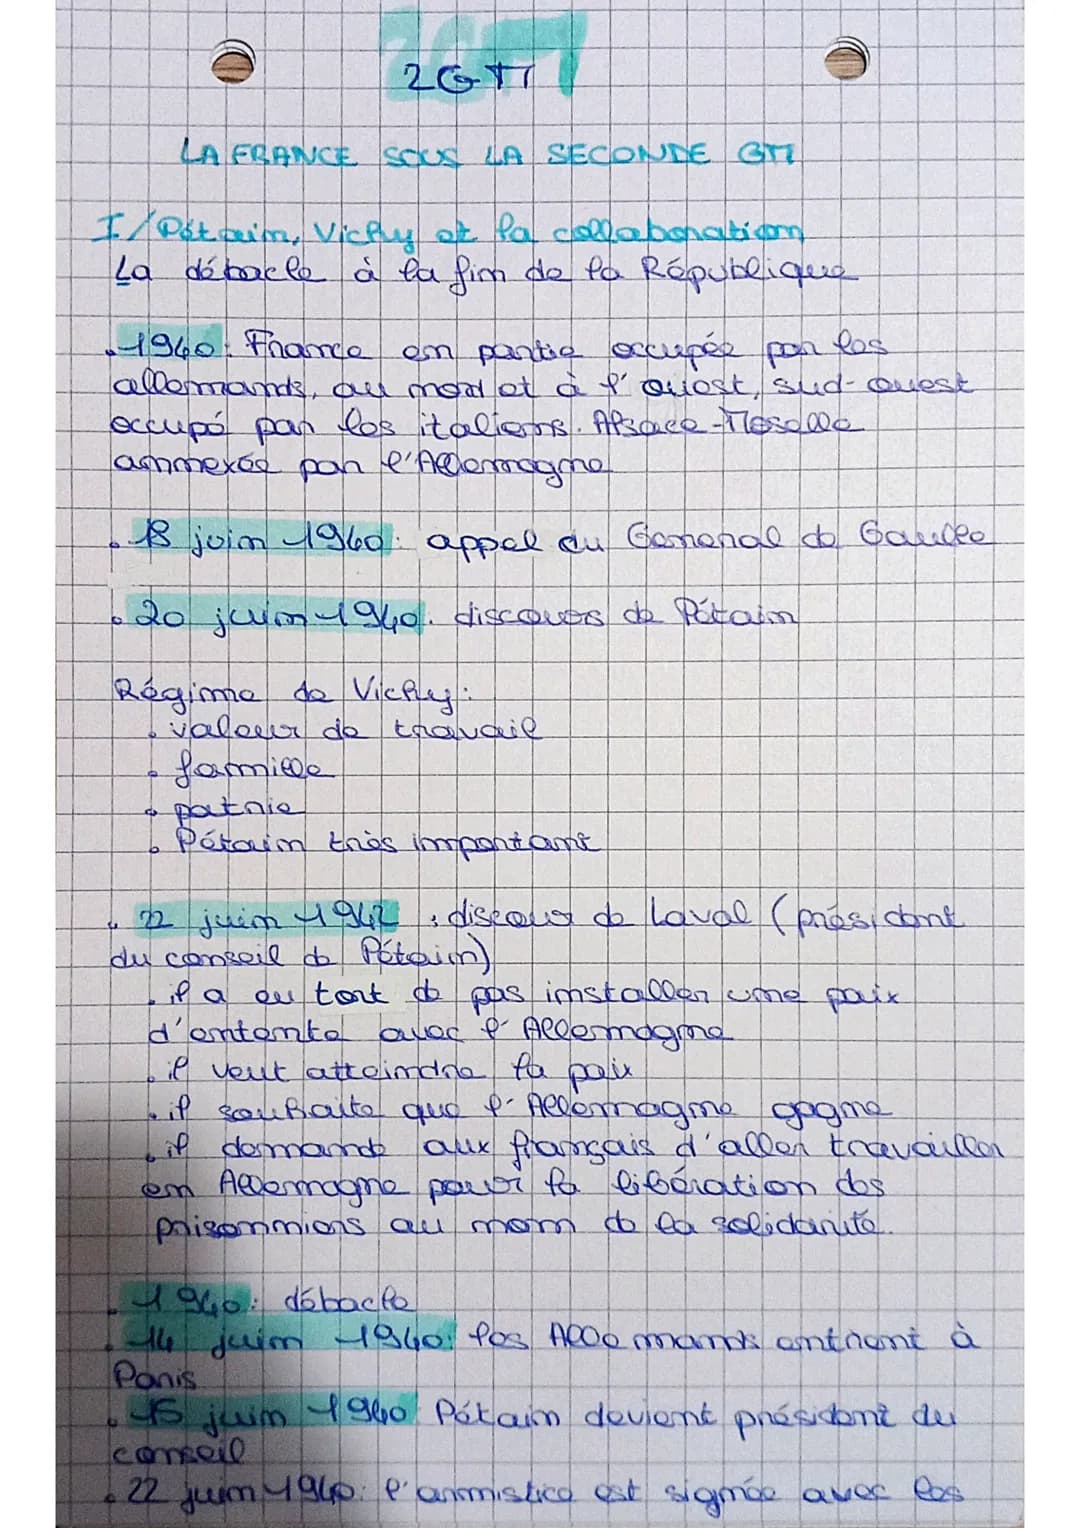 2GM
LA FRANCE SOUS LA SECONDE GM
I/Pétain, Vichy et la collaboration
La débacle à la fin de la République
.1940: France en partie occupée par les
allemands, au nord et à l'ouest, sud-ouest
occupé par les italiens. Alsace-Moselle
annexée par l'Allemagne
. 18 juin 1940: appel du General de Gaulle
. 20 juin 1940. discours de Pétain
Régime de Vichy:
. valeur de travail
. famille
. patrie
. Pétain très important
. 22 juin 1942 : discour de Laval (président
du conseil de Pétain)
. il a eu tort de pas installer une paix
d'entente avec l'Allemagne
. il veut atteindre la paix
. il souhaite que l'Allemagne gagne
. il demande aux français d'aller travailler
en Allemagne pour la libération des
prisonniers au nom de la solidarité.
. 1940: débacle
. 14 juin 1940: les Allemands entrent à
Paris
. 15 juin 1940 Pétain devient président du
conseil
. 22 juin 1940: l'armistice est signée avec les